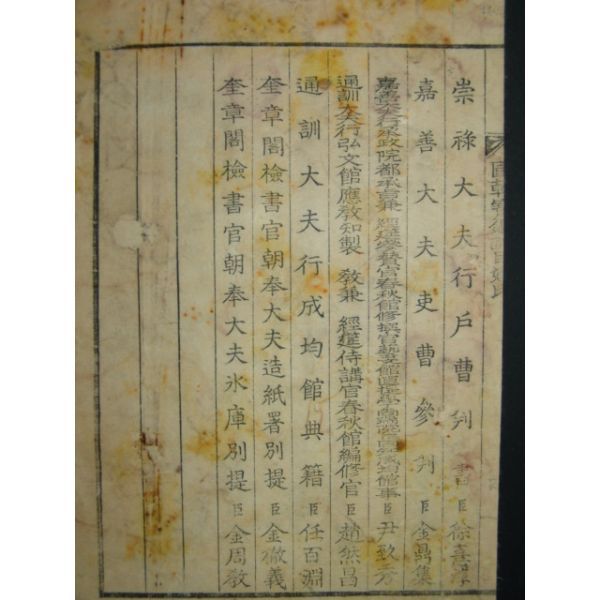 崇祿大夫行戶曹判書臣徐憙淳
嘉善大夫吏曹參判臣金鼎集
嘉善大夫行承政院都承旨兼 經筵參贊官春秋館修撰官藝文館直提學 臣尹致
通訓大夫行弘文館應教知製 教兼 經筵侍講官春秋館編修官臣趙然昌
通訓大夫行成均館典籍臣任百淵
奎章閣檢書官朝奉大夫造紙署別提臣金徽義
奎章閣檢書官朝奉大夫氷庫別提臣金周教